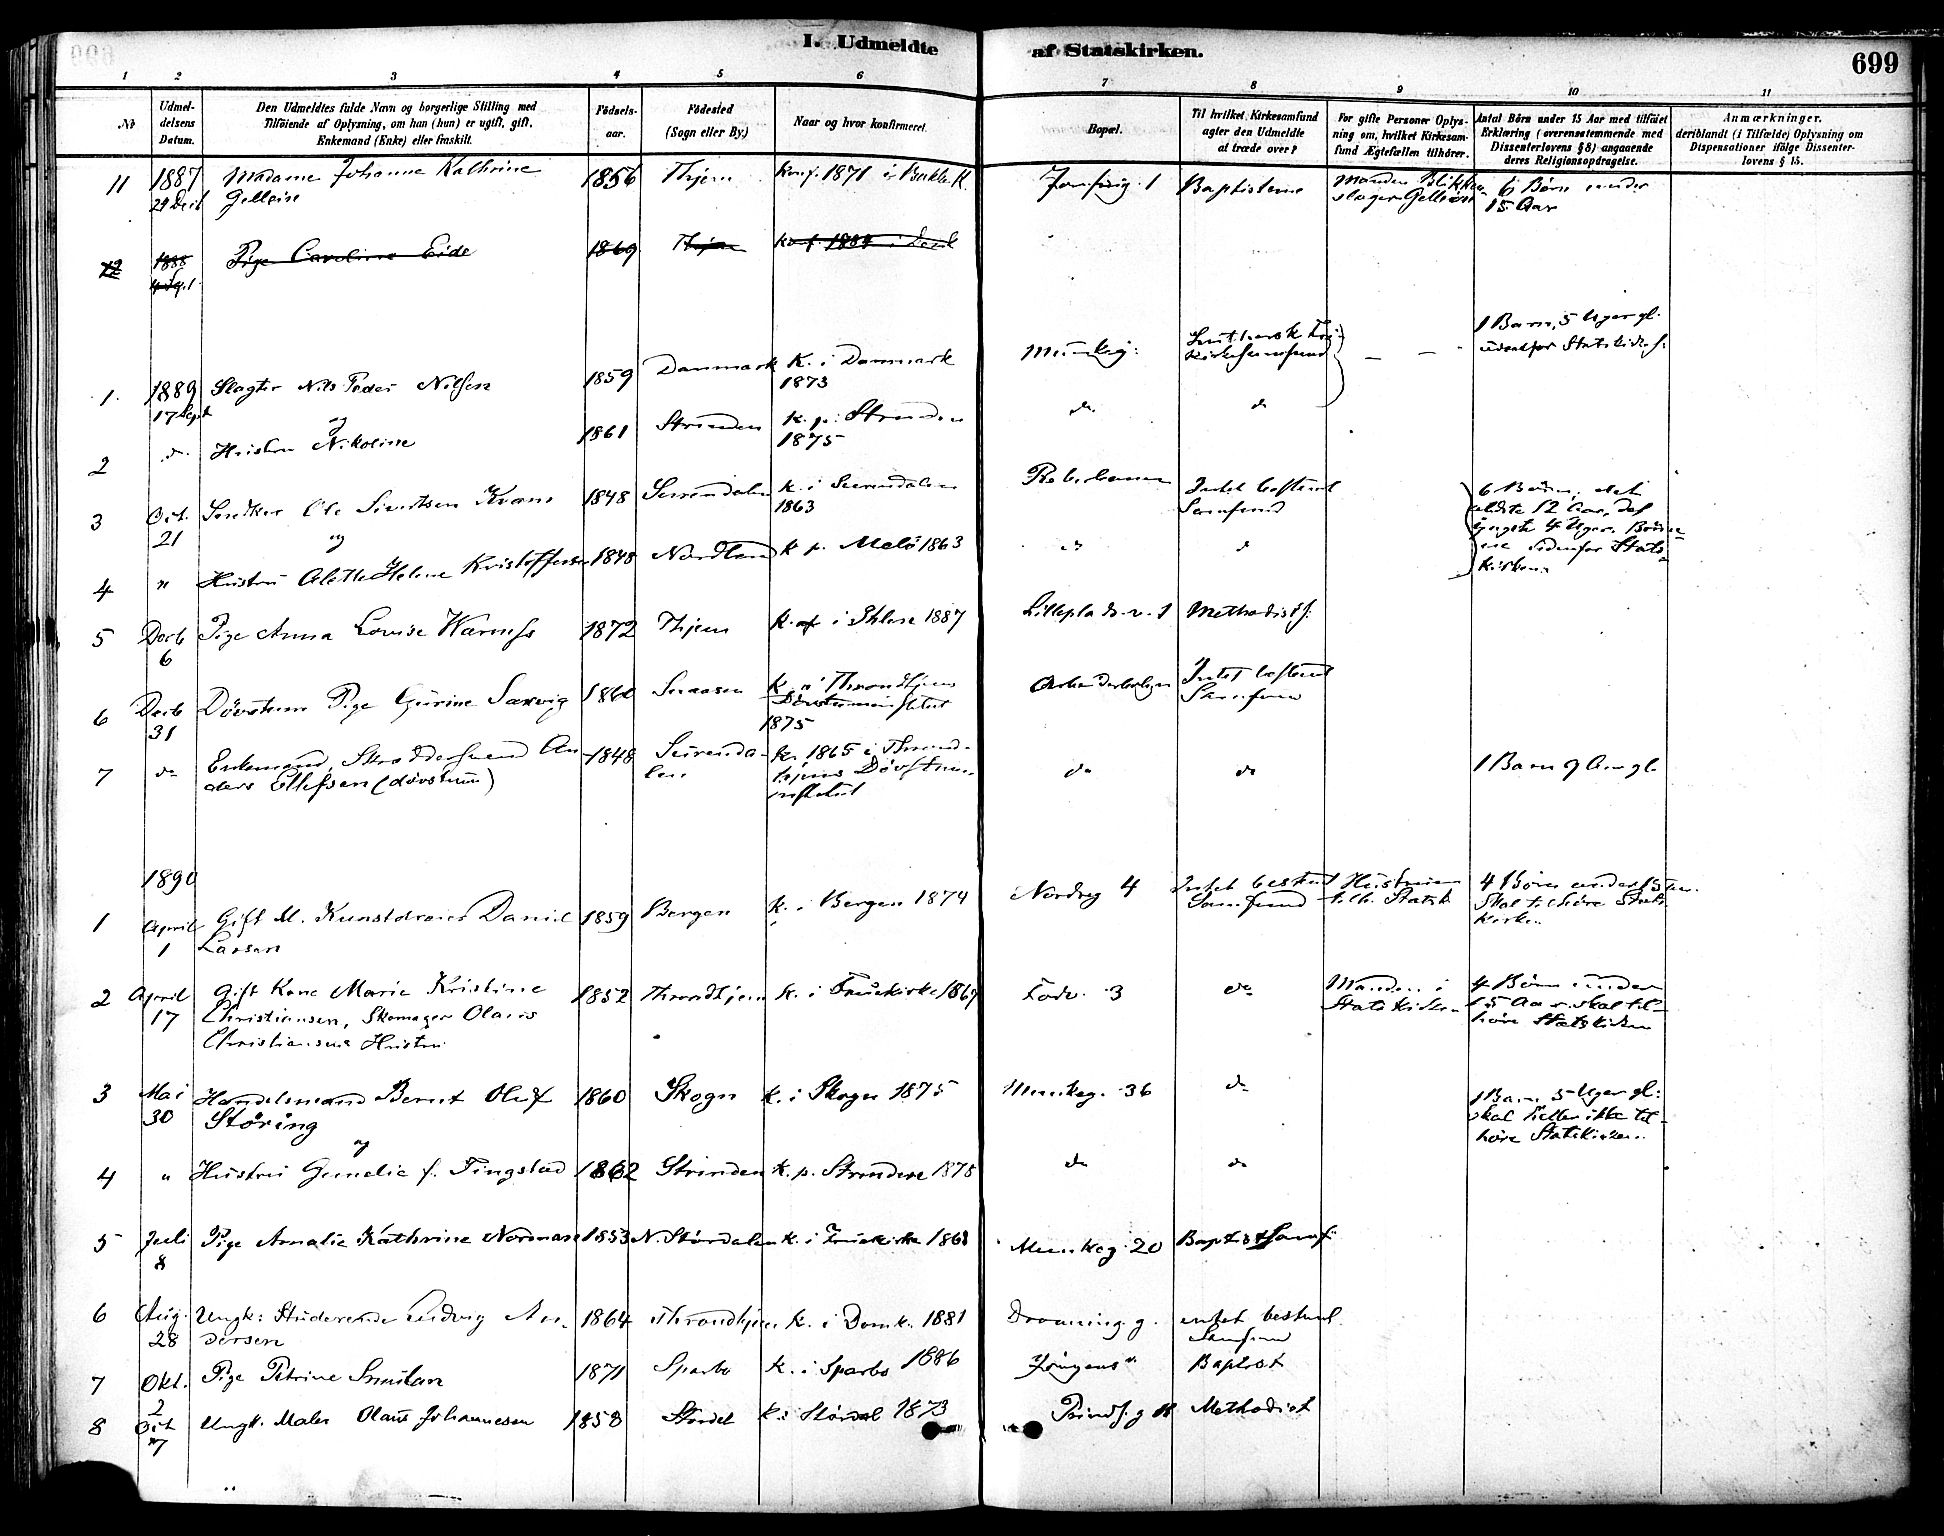 I. Udmeldte af Statskirken.
699
1 2 3 4 5 6 7 8 9 10 11
Nr
Udmel-
delsens
Datum.
Den Udmeldtes fulde Navn og borgerlige Stilling med
Tilføiende af Oplysning, om han (hun) er ugift, gift,
Enkemand (Enke) eller fraskilt.
Fødsels-
aar.
Fødested
(Sogn eller By.)
Naar og hvor konfirmeret.
Bopæl.
Til hvilket Kirkesamfund
agter den Udmeldte
at træde over?
For gifte Personer Oplys-
ning om, hvilket Kirkesam-
fund Ægtefællen tilhører.
Antal Børn under 15 Aar med tilføiet
Erklæring (overensstemmende med
Dissenterlovens § 8) angaaende
deres Religionsopdragelse.
Anmærkninger.
deriblandt (i Tilfælde) Oplysning om
Dispensationer ifølge Dissenter-
lovens § 15.
11 1887 Madame Johanne Kathrine 1856 Thjem Konf. 1871 i Bakke K. 1 Baptisterne Manden Blikken- 6 Børn under
slager 15 Aar
12 1888 Pige Caroline Eide 1869 Thjem konf. i
1 1889 Slagter Nils Peder Nilsen 1859 Danmark K. i Danmark Munkeg: Luthersk Fri- — — 1 Barn, 5 Uger gl.
17 Sept kirkesamfund udenfor Statskirk
1873
og
2 d. Hustru Nikoline 1861 Strinden K. p. Strinden do do
1875
3 Oct. Ole Sivertsen Kvam 1848 Surendalen k. i Surendalen Intet bestemt 6 Børn, det
21 1863 Samfund ældste 12 Aar, det
yngste 4 Uger. Børne-
ne udenfor Stats-
kirken.
og
4 " Hustru Alette Helene Kristoffersen 1848 Nordland k. p. Melø 1863 do d
5 Decb Pige Anna Lovise 1872 Thjem k. i Ihlen 1887 Lilleplads v. 1 Methodists.
6
6 Decb Døvstum Pige Gurine Saxvig 1860 Snaasen k. i Throndhjems Intet bestemt
31 Døvstumminstitut Samfund
1875
7 do Enkemand, Skræddersvend An- 1848 Surenda- k. 1865 i Thrond- do do 1 Barn 9 Aar gl.
ders Ellefsen (døvstum) len hjems Døvstum-
institut
1890
1 April Gift M. Kunstdreier Daniel 1859 Bergen k. i Bergen 1874 Nordreg 4 Intet bestemt Hustruen 4 Børn under 15 Aar.
1 Larsen Samfund tilh. Statsk Skal tilhøre Stats-
kirken
2 April Gift Kone Marie Kristine 1852 Throndhjem k. i Fruekirke 1867 3 do Manden i 4 Børn under
17 Christiansen, Skomager Olaus Statskirken 15 Aar skal til-
Christiansens Hustru høre Statskirken
3 Mai Handelsmand Bernt Oluf 1860 Skogn k. i Skogn 1875 Munkeg. 36 do 1 Barn 5 Uger gl:
30 Støring skal heller ikke til-
høre Statskirken.
og
4 " Hustru Gunelie f. Tingstad 1862 Strinden k. p. Strinden 1878 do do
5 Juli Pige Amalie Kathrine Normann 1853 N. Stördalen k. i Fruekirke 1868 Munkeg. 20 Baptist Samf:
8
6 Aug. Ungk: Studerende Ludvig An- 1864 Throndhjem k. i Domk. 1881 Dronning. g. intet bestemt
28 dersen Samfund
7 Okt. Pige Petrine 1871 Sparbo k. i Sparbo 1886 Baptist
2
8 Oct Ungk. Maler Olaus Johannesen 1858 Stördal k. i Stördal 1873 Prinds. g Methodist
7